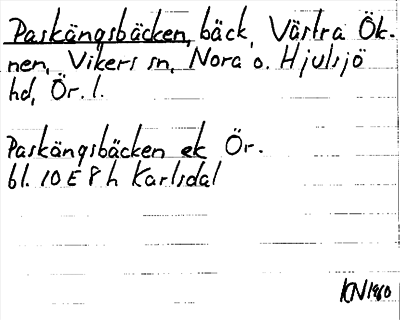 Paskängsbäcken, bäck, Västra Ök-
nen, Vikers sn, Nora o. Hjulsjö
hd, Ör. l.
Paskängsbäcken ek Ör.
bl. 10 E 8 h Karlsdal
KN 1980